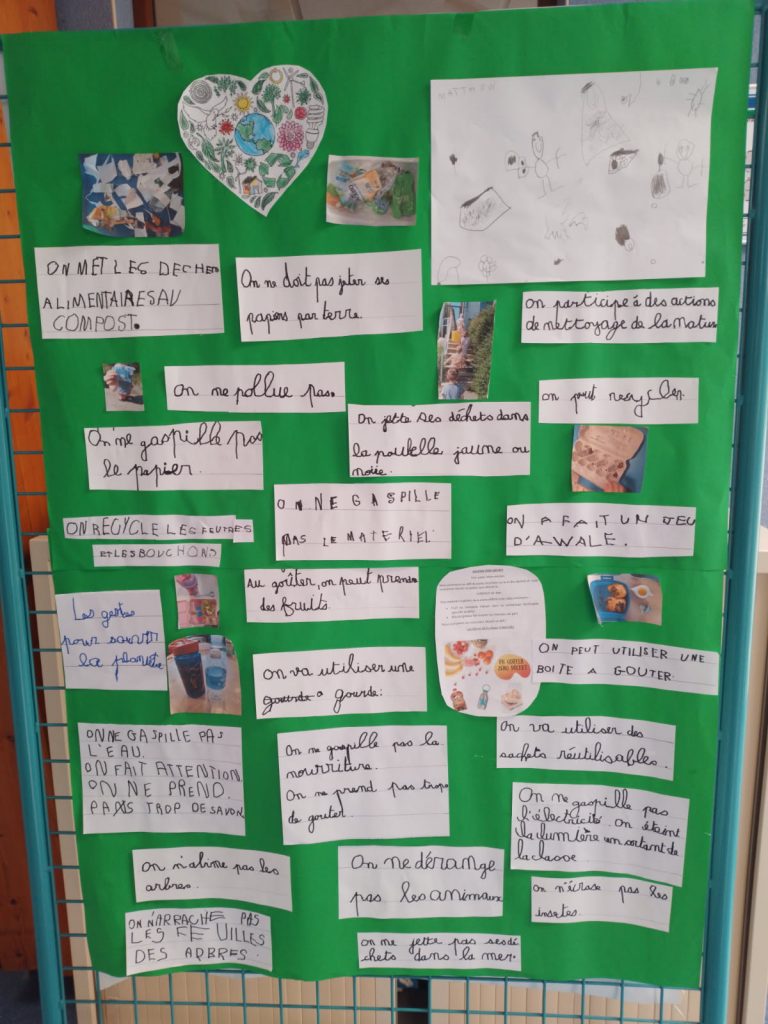 ON MET LES DECHE
ALIMENTAIRES AU
COMPOST.
On ne doit pas jeter ses
papiers par terre.
on participe à des actions
de nettoyage de la natur
on ne pollue pas.
on peut recycler.
On ne gaspille pas
le papier.
On jette ses déchets dans
la poubelle jaune ou
noire.
ON RECYCLE LES FEUTRES
ET LES BOUCHONS
ON NE GASPILLE
PAS LE MATERIEL.
ON A FAIT UN JEU
D'AWALE.
Au goûter, on peut prendre
des fruits.
Les gestes
pour sauver
la planète
UN GOUTER
ZERO DECHET
ON PEUT UTILISER UNE
BOITE A GOUTER.
on va utiliser une
gourde.
ON NE GASPILLE PAS
L'EAU.
ON FAIT ATTENTION.
ON NE PREND.
PAS TROP DE SAVON.
On ne gaspille pas la
nourriture.
On ne prend pas trop
de gouter.
On va utiliser des
sachets réutilisables.
On ne gaspille pas
l'électricité. On éteint
la lumière en sortant de
la classe.
On n'abîme pas les
arbres.
On ne dérange
pas les animaux
On n'écrase pas les
insectes.
ON N'ARRACHE PAS
LES FEUILLES
DES ARBRES.
on ne jette pas ses dé
chets dans la mer.